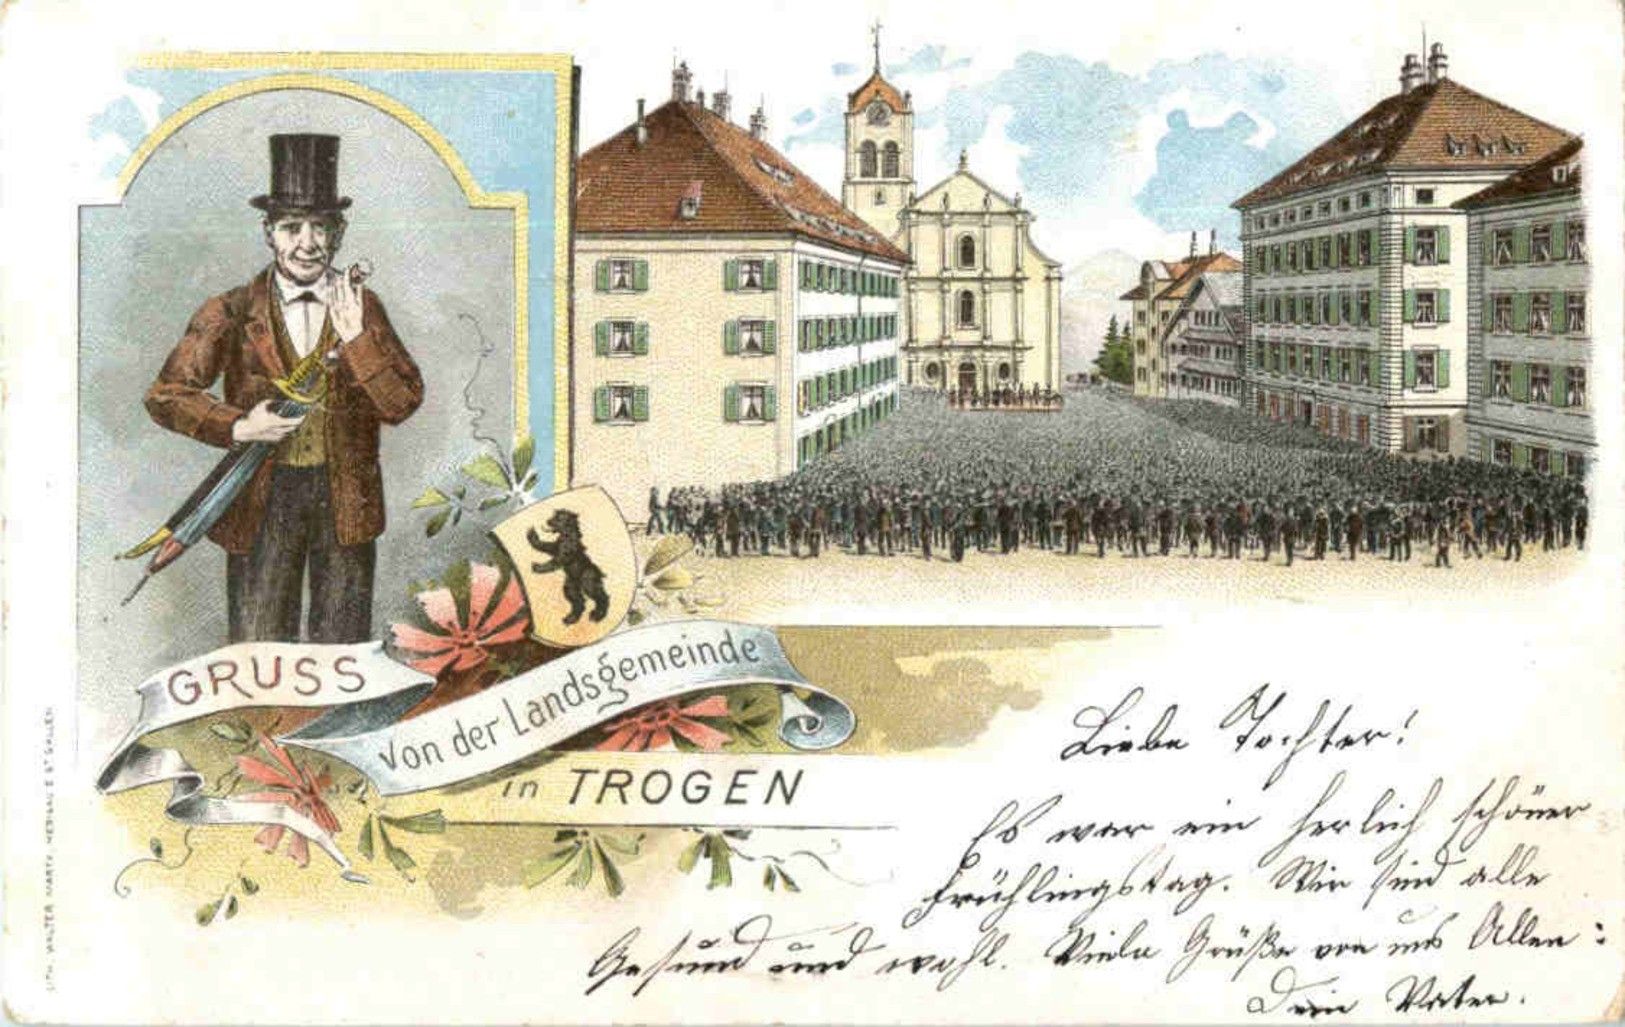 GRUSS
von der Landsgemeinde
in TROGEN
Liebe Tochter!
Es war ein herlich schöner
Frühlingstag. Wir sind alle
Gesund und wohl. Viele Grüße von uns Allen:
Dein Vater.
LITH. WALTER MARTY, HERISAU & ST. GALLEN